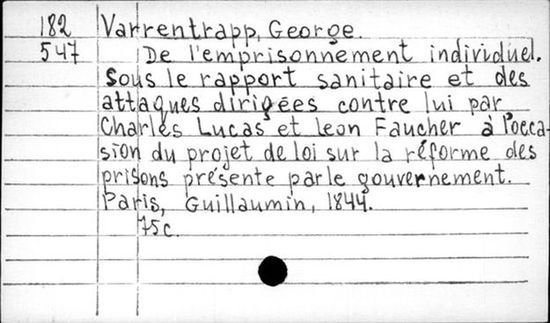 182 Varrentrapp, George.
547 De l'emprisonnement individuel.
Sous le rapport sanitaire et des
attaques dirigées contre lui par
Charles Lucas et Leon Faucher à l'occa-
sion du projet de loi sur la réforme des
prisons présente par le gouvernement.
Paris, Guillaumin, 1844.
75c.